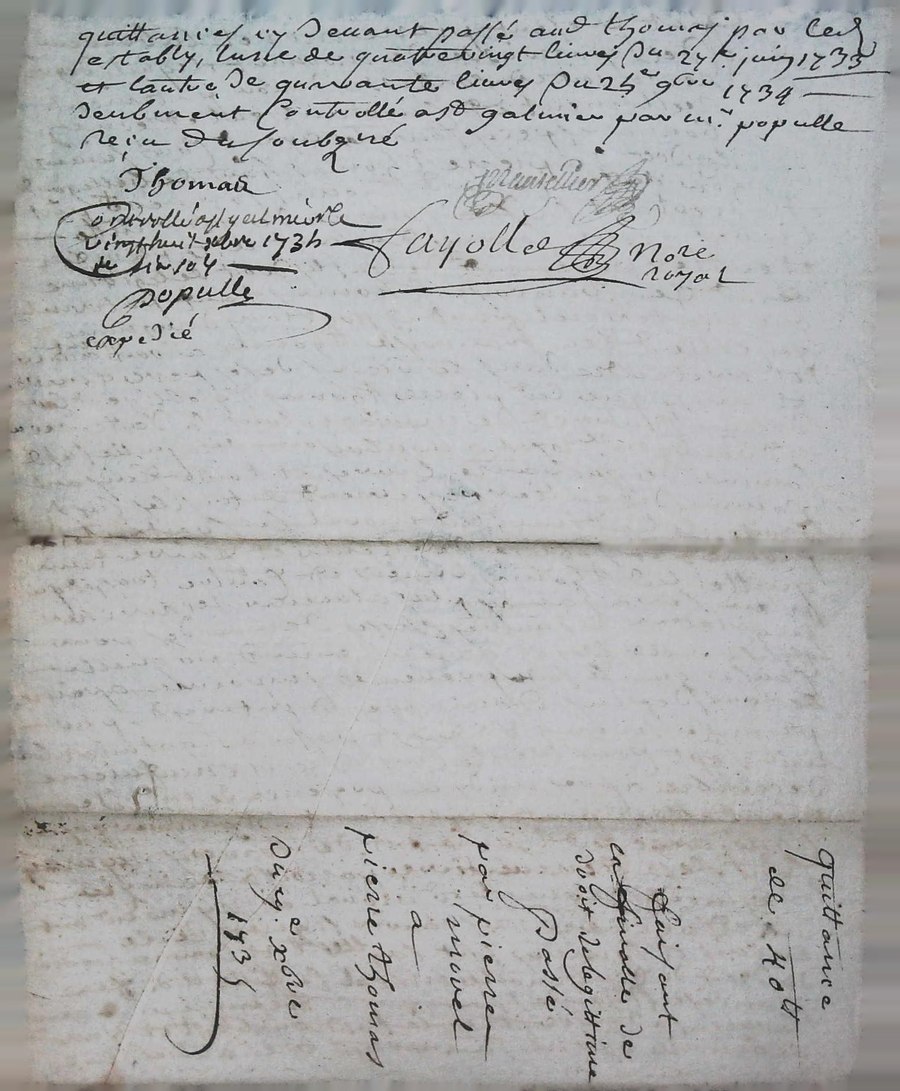 quittances cy devant passé aud thomas par led
establi, lune de quatrevingt livres du 27e juin 1733
et lautre de quarante livres du 25e 9bre 1734
deubment Controllé a st galmier par mr. populle
reçu du soubgné
Thomas
Controllé a st galmier le
vingthuit xbre 1735
populle
expedié
fayolle Nore
royal
quittance
de 40lt
faisant
en finalle de
droit de legittime
passé
par pierre
a
pierre thomas
du xbre
1735